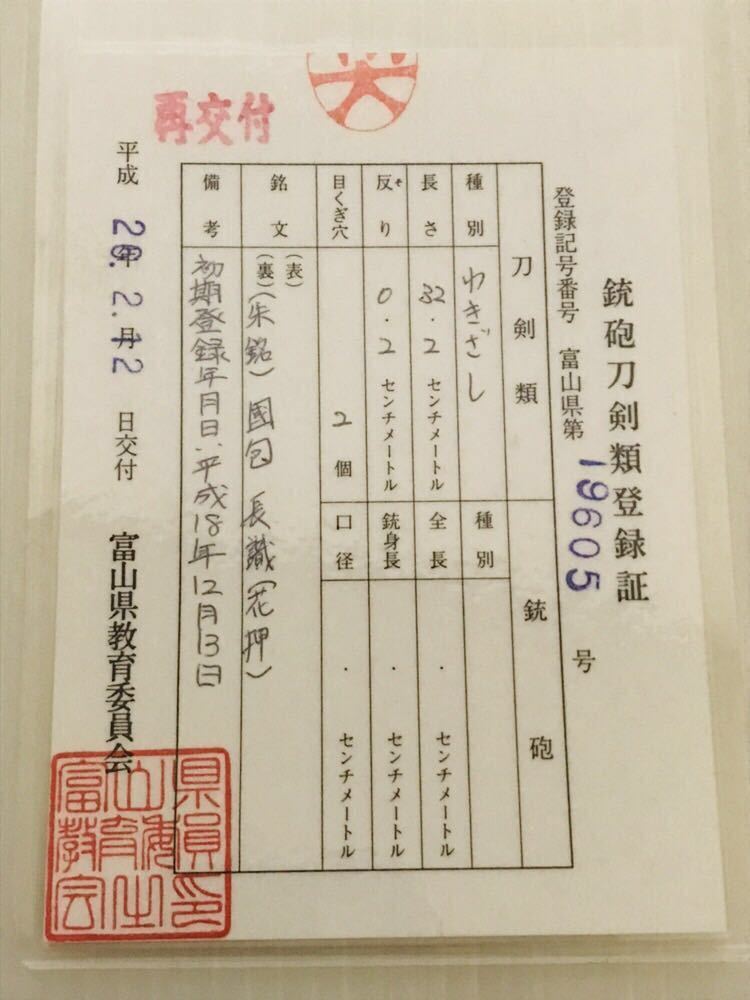 銃砲刀剣類登録証
登録記号番号 富山県第 19605 号
刀剣類
銃砲
種別 わきざし
種別
長さ 32.2 センチメートル
全長 . センチメートル
反り そ 0.2 センチメートル
銃身長 . センチメートル
目くぎ穴 2 個
口径 . センチメートル
銘文 (表)
(裏) (朱銘) 國包 長識(花押)
備考 初期登録年月日、平成18年12月13日
平成 年 2.月12 日交付 富山県教育委員会
再交付
富山県教育委員会之印